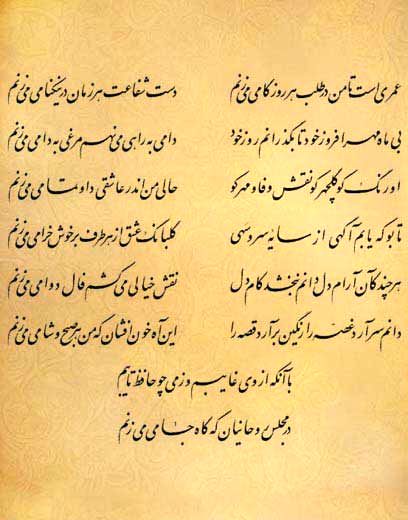 عمری است تا من در طلب هر روز گامی می‌زنم دست شفاعت هر زمان در نیکنامی می‌زنم
بی ماه مهر افروز خود تا بگذرانم روز خود دامی به راهی می‌نهم مرغی به دامی می‌زنم
اورنگ کو گلچهر کو نقش وفا و مهر کو حالی من اندر عاشقی داو تمامی می‌زنم
تا بو که یابم آگهی از سایه سرو سهی گلبانگ عشق از هر طرف بر خوش خرامی می‌زنم
هر چند کآن آرام دل دانم نبخشد کام دل نقش خیالی می‌کشم فال دوامی می‌زنم
دانم سر آرد غصه را رنگین برآرد قصه را این آه خون افشان که من هر صبح و شامی می‌زنم
با آنکه از وی غایبم وز می چو حافظ تایبم
در مجلس روحانیان گه گاه جامی می‌زنم